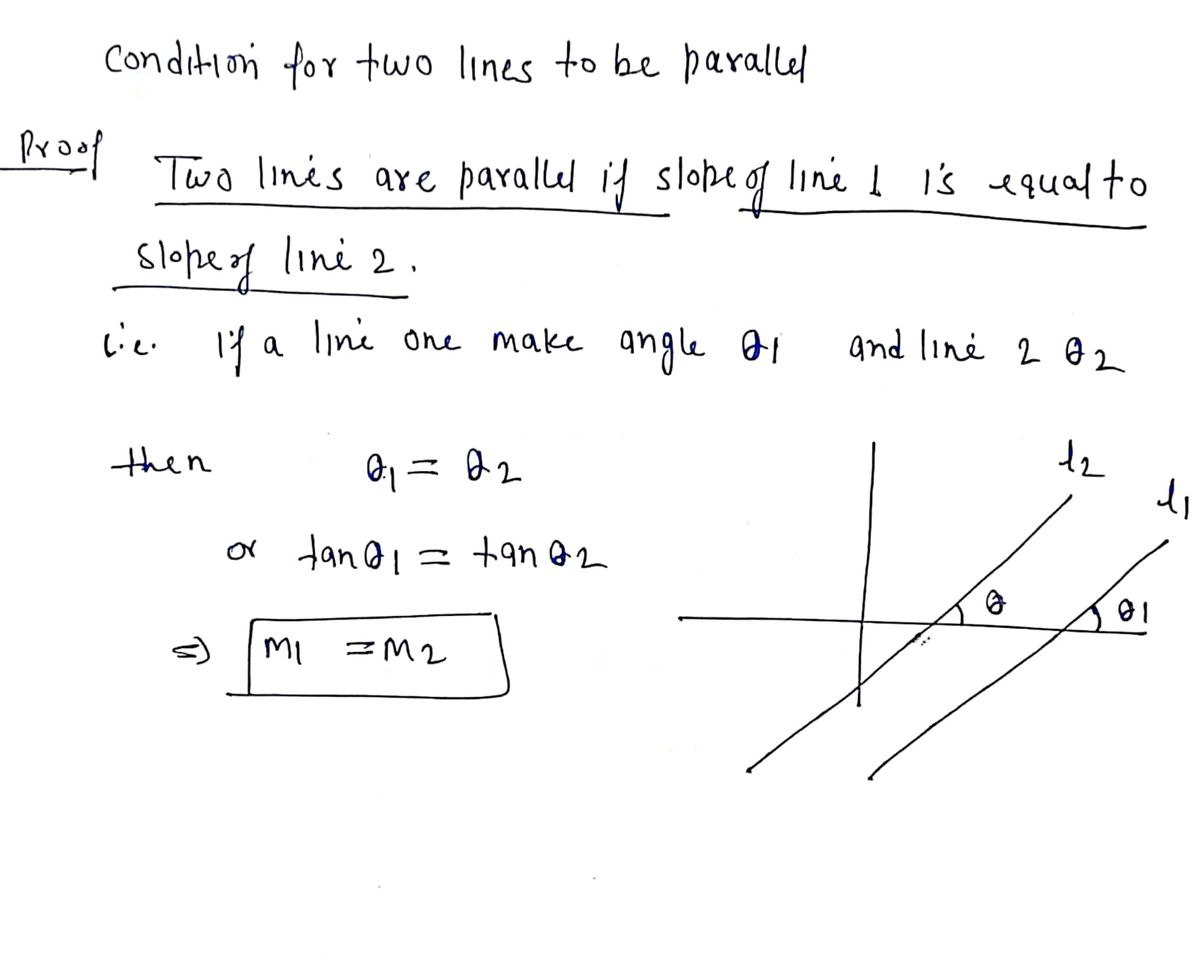 Condition for two lines to be parallel
Proof
Two lines are parallel if slope of line 1 is equal to
slope of line 2.
i.e. if a line one make angle θ1 and line 2 θ2
then θ1 = θ2
or tanθ1 = tanθ2
⇒ m1 = m2
l2
l1
θ
θ1